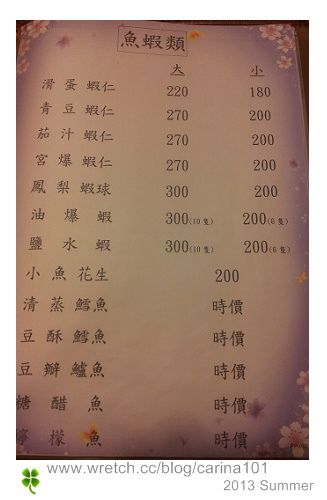 魚蝦類
大 小
滑蛋蝦仁 220 180
青豆蝦仁 270 200
茄汁蝦仁 270 200
宮爆蝦仁 270 200
鳳梨蝦球 300 200
油爆蝦 300(10隻) 200(6隻)
鹽水蝦 300(10隻) 200(6隻)
小魚花生 200
清蒸鱈魚 時價
豆酥鱈魚 時價
豆瓣鱸魚 時價
糖醋魚 時價
檸檬魚 時價
www.wretch.cc/blog/carina101
2013 Summer